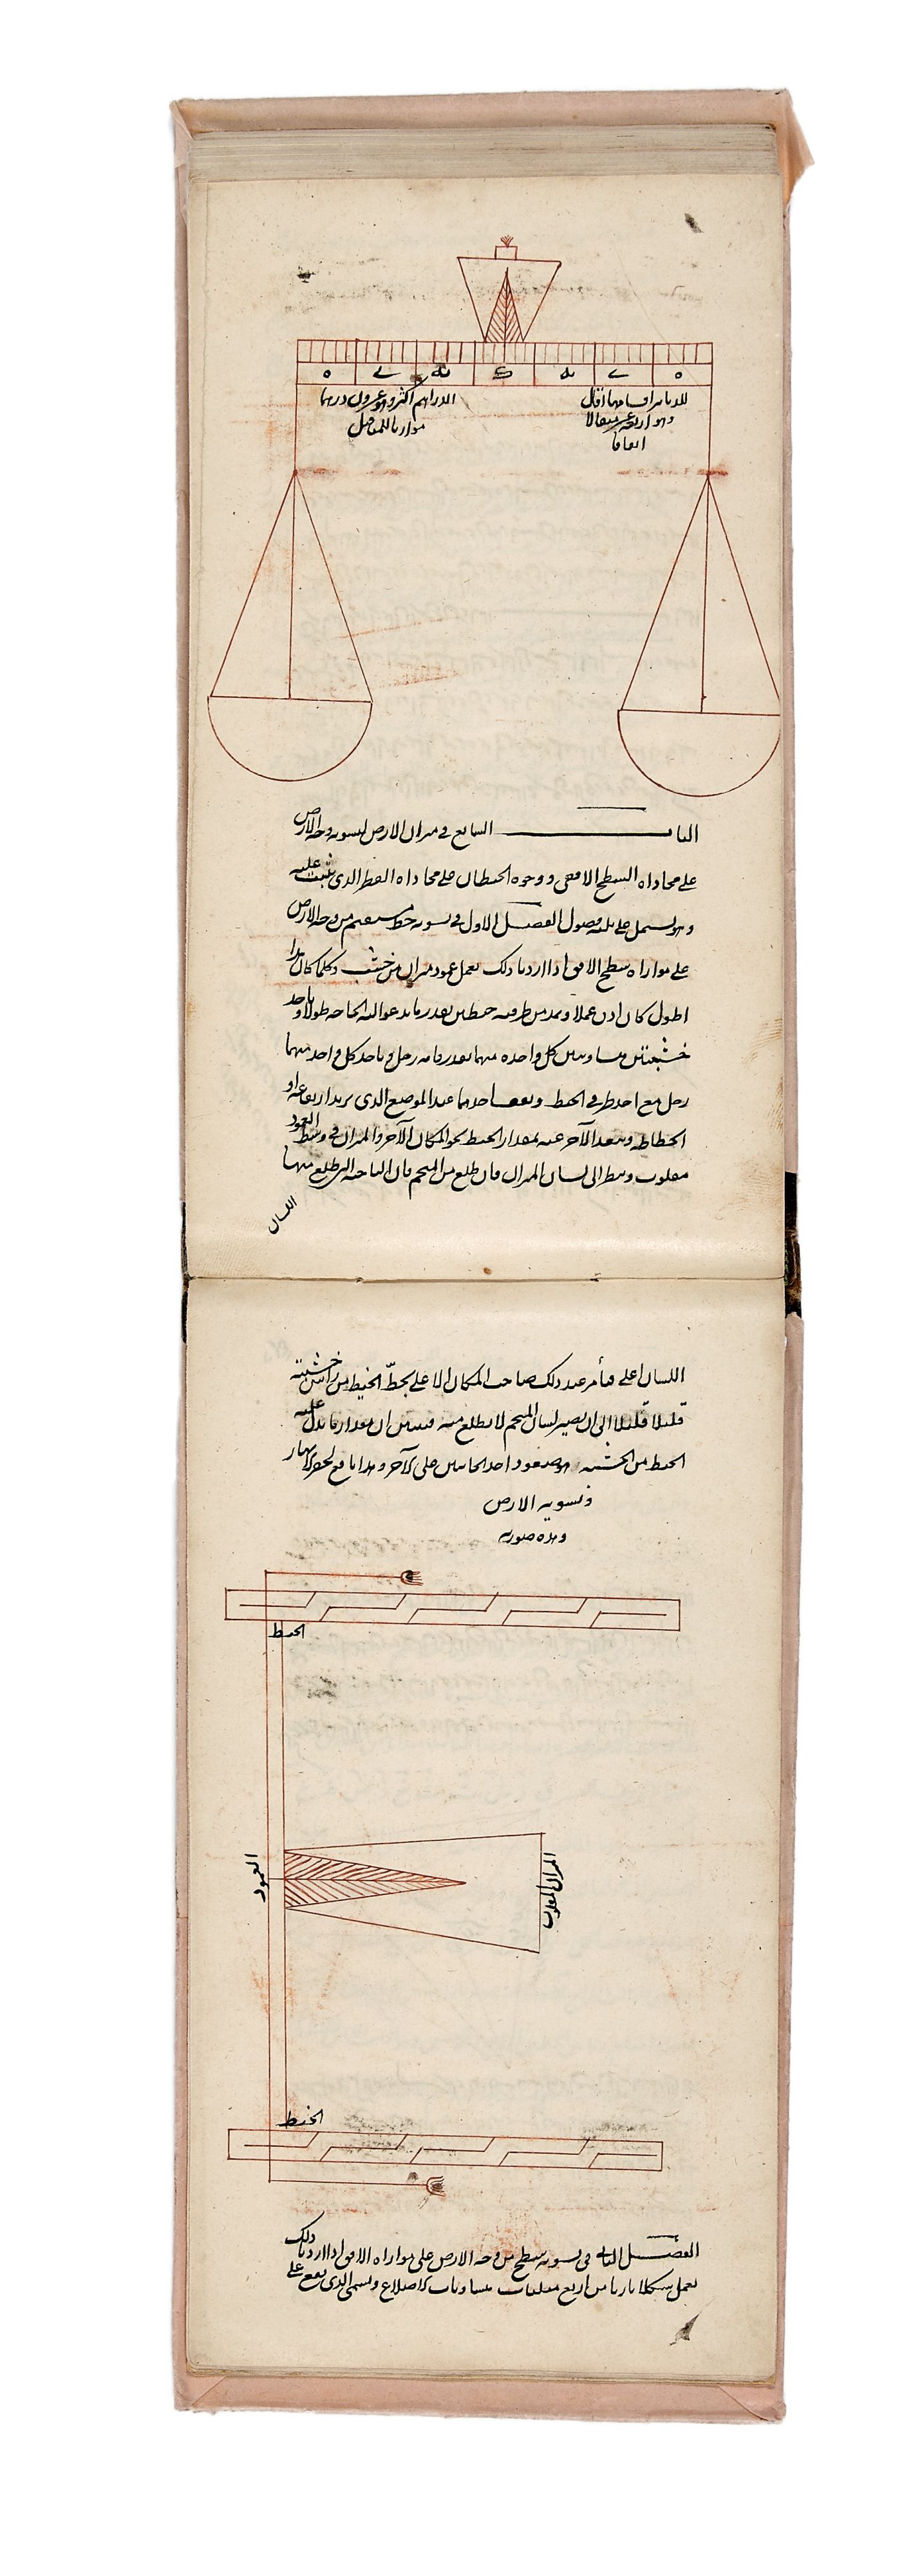 ه ي يه ك يه ي ه
للدنانير اقسامها اقل
وهو اربعة عشر مثقالا
اتفاقا
الدراهم اكثر وهو عشرون درهما
الباب السابع في ميزان الارض لتسوية وجه الارض
على محاذاة السطح الافقي ووجوه الحيطان على محاذاة القطر الذي يثبت عليه
وهو يشتمل على ثلثة فصول الفصل الاول في تسوية خط مستقيم من وجه الارض
على موازاة سطح الافق اذا اردنا ذلك نعمل عمود ميزان من خشب وكلما كان هذا
اطول كان ادق عملا ونمد من طرفيه خيطين بقدر ما يدعو اليه الحاجة طولا وناخذ
خشبتين متساويتين كل واحدة منهما بقدر قامة رجل وياخذ كل واحد منهما
رجل مع احد طرفي الخيط ويقف احدهما عند الموضع الذي يريد ارتفاعه او
انحطاطه ويتعد الآخر عنه بمقدار الخيط نحو المكان الآخر والميزان في وسط العمود
مقلوب وينظر الى لسان الميزان فان طلع من المنجم فان الناحية التي طلع منها
اللسان
اللسان اعلى فيأمر عند ذلك صاحب المكان الاعلى بحطّ الخيط من راس خشبته
قليلا قليلا الى ان يصير لسان المنجم لا يطلع منه فيتبين ان مقدار ما يدل عليه
الخيط من الخشبة هو صعود احد الجانبين على الآخر وهذا نافع لحفر الانهار
وتسوية الارض
وهذه صورته
الخيط
العمود
الميزان المقلوب
الخيط
الفصل الثاني في تسوية سطح من وجه الارض على موازاة الافق اذا اردنا ذلك
نعمل شكلا ناريا من اربع مثلثات متساويات الاضلاع ويسمى الذي يقع على